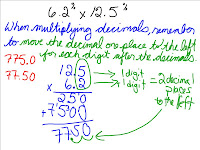 6.2 x 12.5
When multiplying decimals, remember
to move the decimal one place to the left
for each digit after the decimals.
775.0
77.50
12.5 → 1 digit
x 6.2 → 1 digit = 2 decimal places to the left
250
+7500
7750